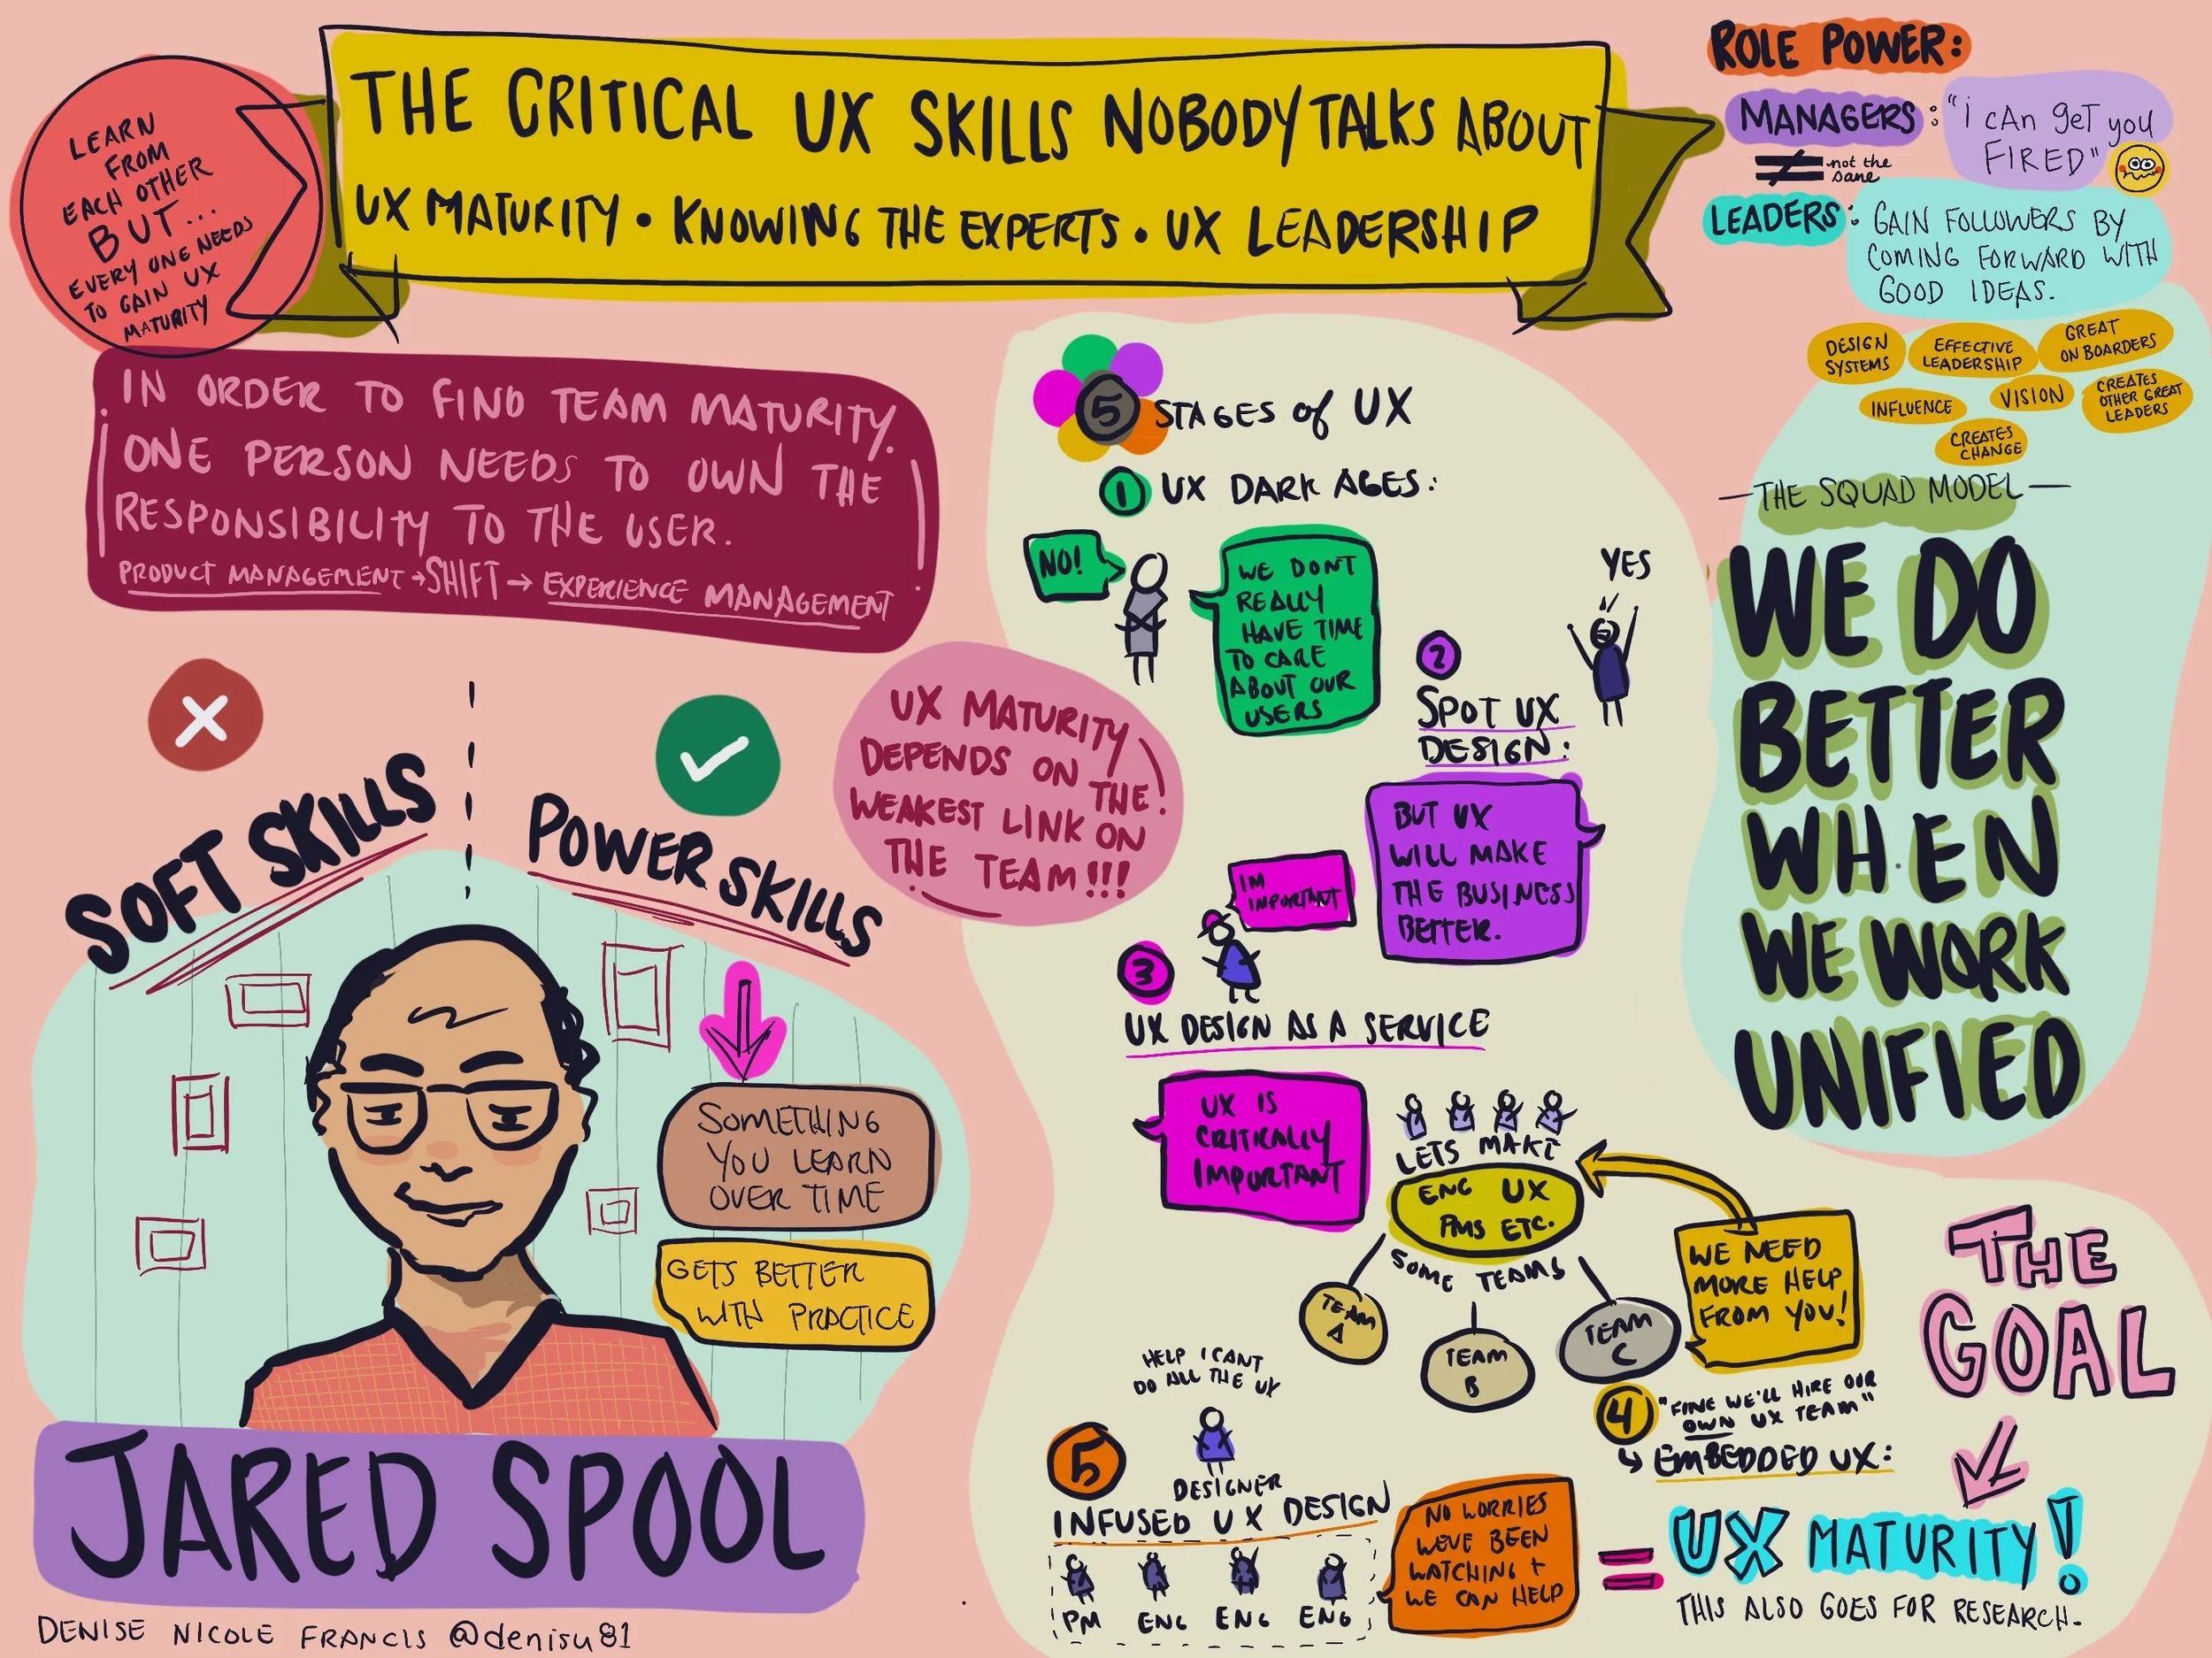 LEARN
FROM
EACH OTHER
BUT...
EVERY ONE NEEDS
TO GAIN UX
MATURITY
THE CRITICAL UX SKILLS NOBODY TALKS ABOUT
UX MATURITY • KNOWING THE EXPERTS • UX LEADERSHIP
ROLE POWER:
MANAGERS: "i cAn geT you
FIRED"
≠ not the
same
LEADERS: GAIN FOLLOWERS BY
COMING FORWARD WITH
GOOD IDEAS.
DESIGN
SYSTEMS
EFFECTIVE
LEADERSHIP
GREAT
ON BOARDERS
INFLUENCE
VISION
CREATES
OTHER GREAT
LEADERS
CREATES
CHANGE
—THE SQUAD MODEL—
WE DO
BETTER
WHEN
WE WORK
UNIFIED
IN ORDER TO FIND TEAM MATURITY.
ONE PERSON NEEDS TO OWN THE
RESPONSIBILITY TO THE USER.
PRODUCT MANAGEMENT → SHIFT → EXPERIENCE MANAGEMENT
SOFT SKILLS
POWER SKILLS
SOMETHING
YOU LEARN
OVER TIME
GETS BETTER
WITH PRACTICE
JARED SPOOL
DENISE NICOLE FRANCIS @denisu81
UX MATURITY
DEPENDS ON THE
WEAKEST LINK ON
THE TEAM!!!
5 STAGES of UX
1 UX DARK AGES:
NO!
WE DONT
REALLY
HAVE TIME
TO CARE
ABOUT OUR
USERS
YES
2
SPOT UX
DESIGN:
BUT UX
WILL MAKE
THE BUSINESS
BETTER.
IM
IMPORTANT
3
UX DESIGN AS A SERVICE
UX IS
CRITICALLY
IMPORTANT
LETS MAKE
ENG UX
PMS ETC.
SOME TEAMS
TEAM
A
TEAM
B
TEAM
C
WE NEED
MORE HELP
FROM YOU!
4 "FINE WE'LL HIRE OUR
OWN UX TEAM"
↳ EMBEDDED UX:
HELP I CANT
DO ALL THE UX
DESIGNER
5
INFUSED UX DESIGN
PM ENG ENG ENG
NO WORRIES
WEVE BEEN
WATCHING +
WE CAN HELP
THE
GOAL
= UX MATURITY!
THIS ALSO GOES FOR RESEARCH.